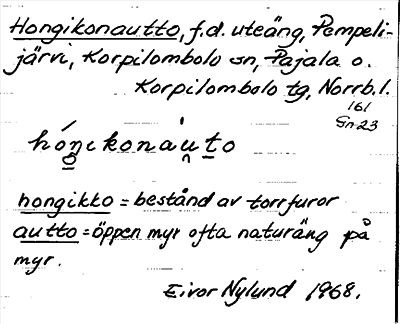 Hongikonautto, f.d. uteäng, Pempeli-
järvi, Korpilombolo sn, Pajala o.
Korpilombolo tg, Norrb.l.
161
Gn 23
hóŋikonau̯to
hongikko = bestånd av torrfuror
autto = öppen myr ofta naturäng på
myr.
Eivor Nylund 1968.